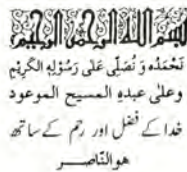 بسم الله الرحمن الرحيم
نَحْمَدُه وَ نُصَلِّى عَلٰى رَسُوْلِهِ الْكَرِيْمِ
وعلیٰ عبدہِ المسیح الموعود
خدا کے فضل اور رحم کے ساتھ
ھو النّاصر